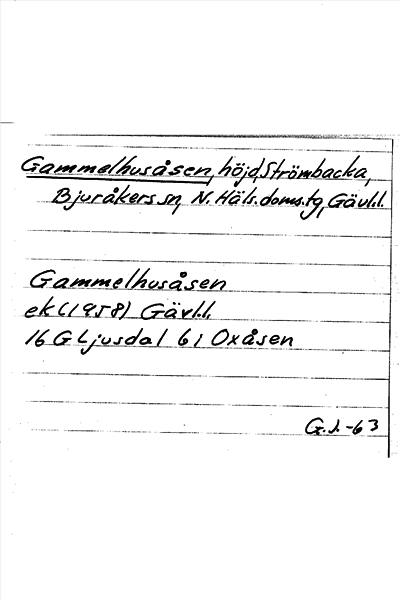 Gammelhusåsen, höjd, Strömbacka,
Bjuråkers sn, N. Häls. doms. tg, Gävl.l.
Gammelhusåsen
ek (1958) Gävl.l.
16 G Ljusdal 6 i Oxåsen
G.J.-63